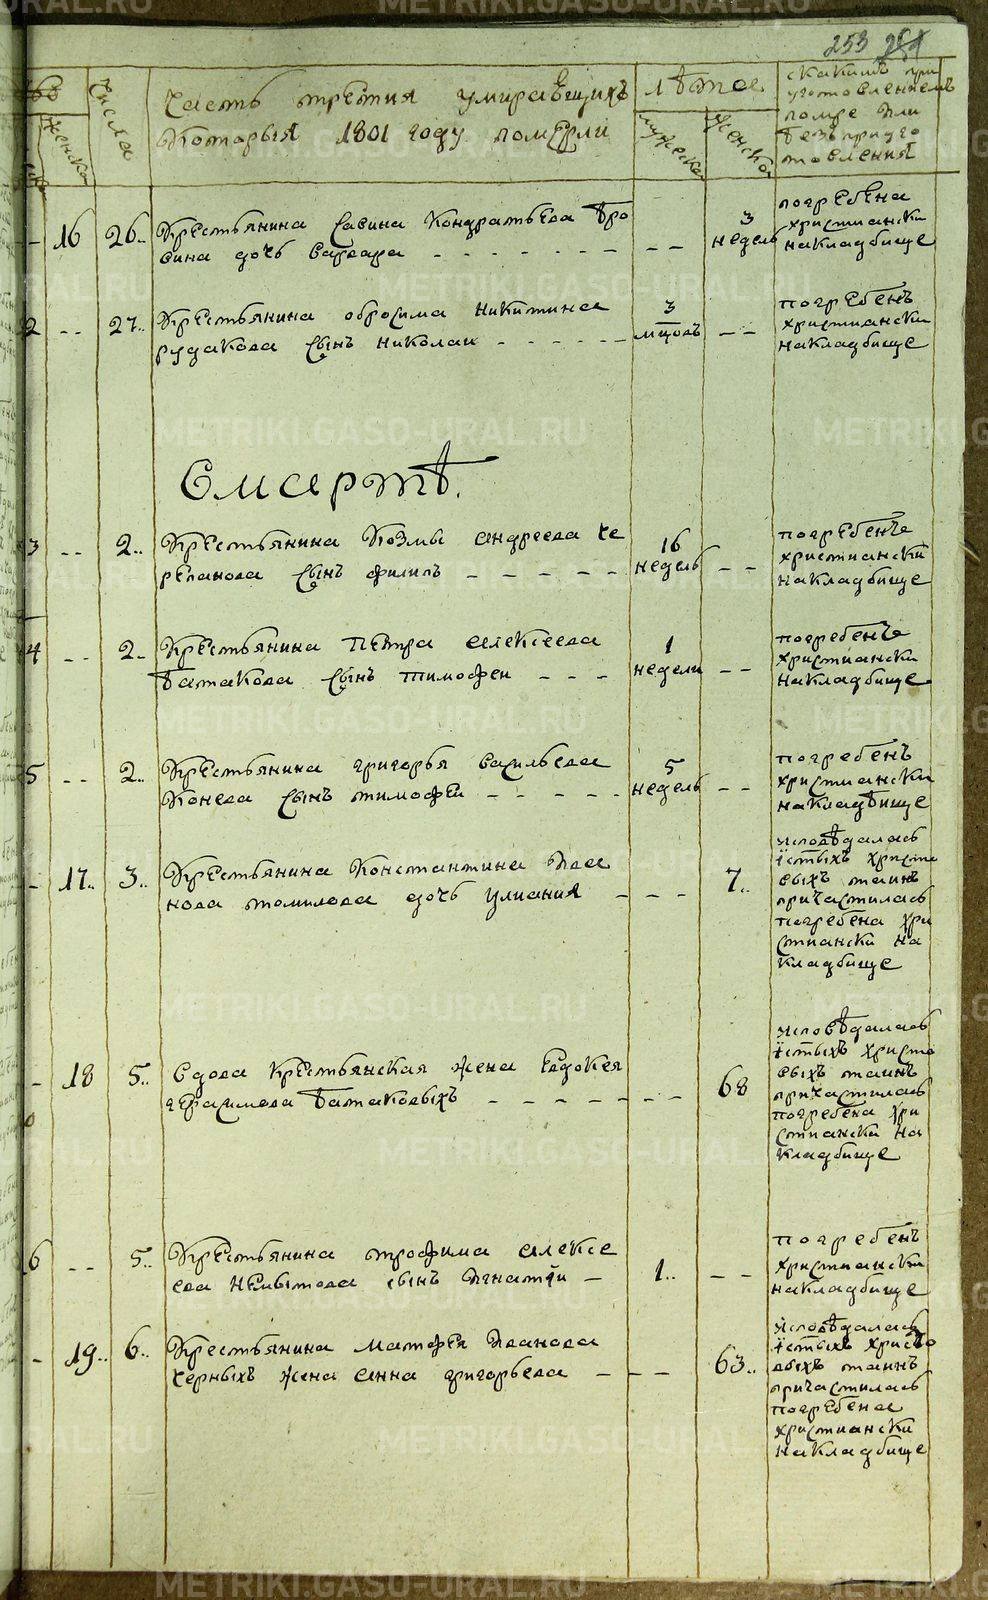 253
женска
Числа
Часть третия умирающихъ
Которыя 1801 году померли
Лѣта
мужеска
женска
скакимъ при
уготовлениемъ
помре или
безъ приуго
товления
16 26.. Крестьянина Савина Кондратьева Бро
сина дочь варвара
3
недель
погребена
христиански
накладбище
2 27.. Крестьянина обросима Никитина
рудакова сынъ Николаи
3
мцовъ
погребенъ
христиански
накладбище
Смартъ.
3 2.. Крестьянина Козмы андреева че
репанова сынъ филипъ
16
недель
погребенъ
христиански
накладбище
4 2.. Крестьянина Петра алексеева
батакова сынъ тимофеи
1
недели
погребенъ
христиански
накладбище
5 2.. Крестьянина григорья васильева
Конева сынъ тимофеи
5
недель
погребенъ
христиански
накладбище
17.. 3.. Крестьянина Константина Ива
нова томилова дочь улиания
7..
исповѣдалась
істыхъ христо
выхъ таинъ
причастилась
погребена хри
стиански на
кладбище
18 5.. вдова крестьянская жена Евдокея
герасимова батаковыхъ
68
исповѣдалась
істыхъ христо
выхъ таинъ
причастилась
погребена хри
стиански на
кладбище
6 5.. Крестьянина трофима алексе
ева немытова сынъ Игнатѣи
1..
погребенъ
христиански
накладбище
19.. 6.. Крестьянина матфея Иванова
черныхъ жена анна григорьева
63..
исповѣдалась
істыхъ христо
выхъ таинъ
причастилась
погребена
христиански
накладбище
METRIKI.GASO-URAL.RU